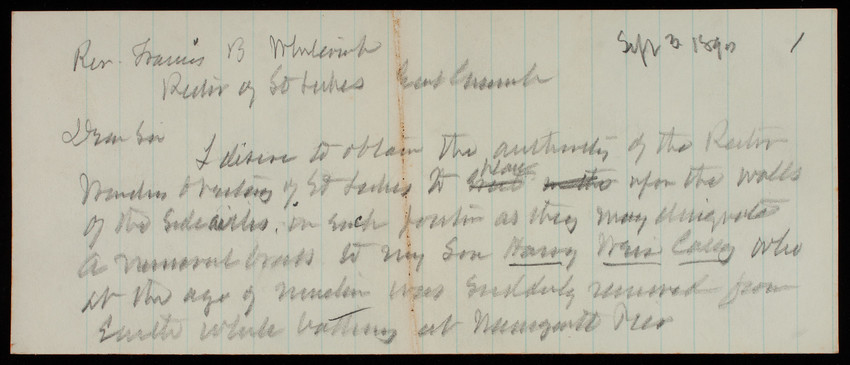 Sept 2 1890 1
Rev. Francis B Whitcomb
Rector of St Lukes
Dear Sir
I desire to obtain the authority of the Rector
Wardens & Vestry of St Lukes to place upon the walls
of the Side aisles, in such position as they may designate
a memorial brass to my Son Harry Weir Casey who
at the age of nineteen was Suddenly removed from
Earth while bathing at Narragansett Pier